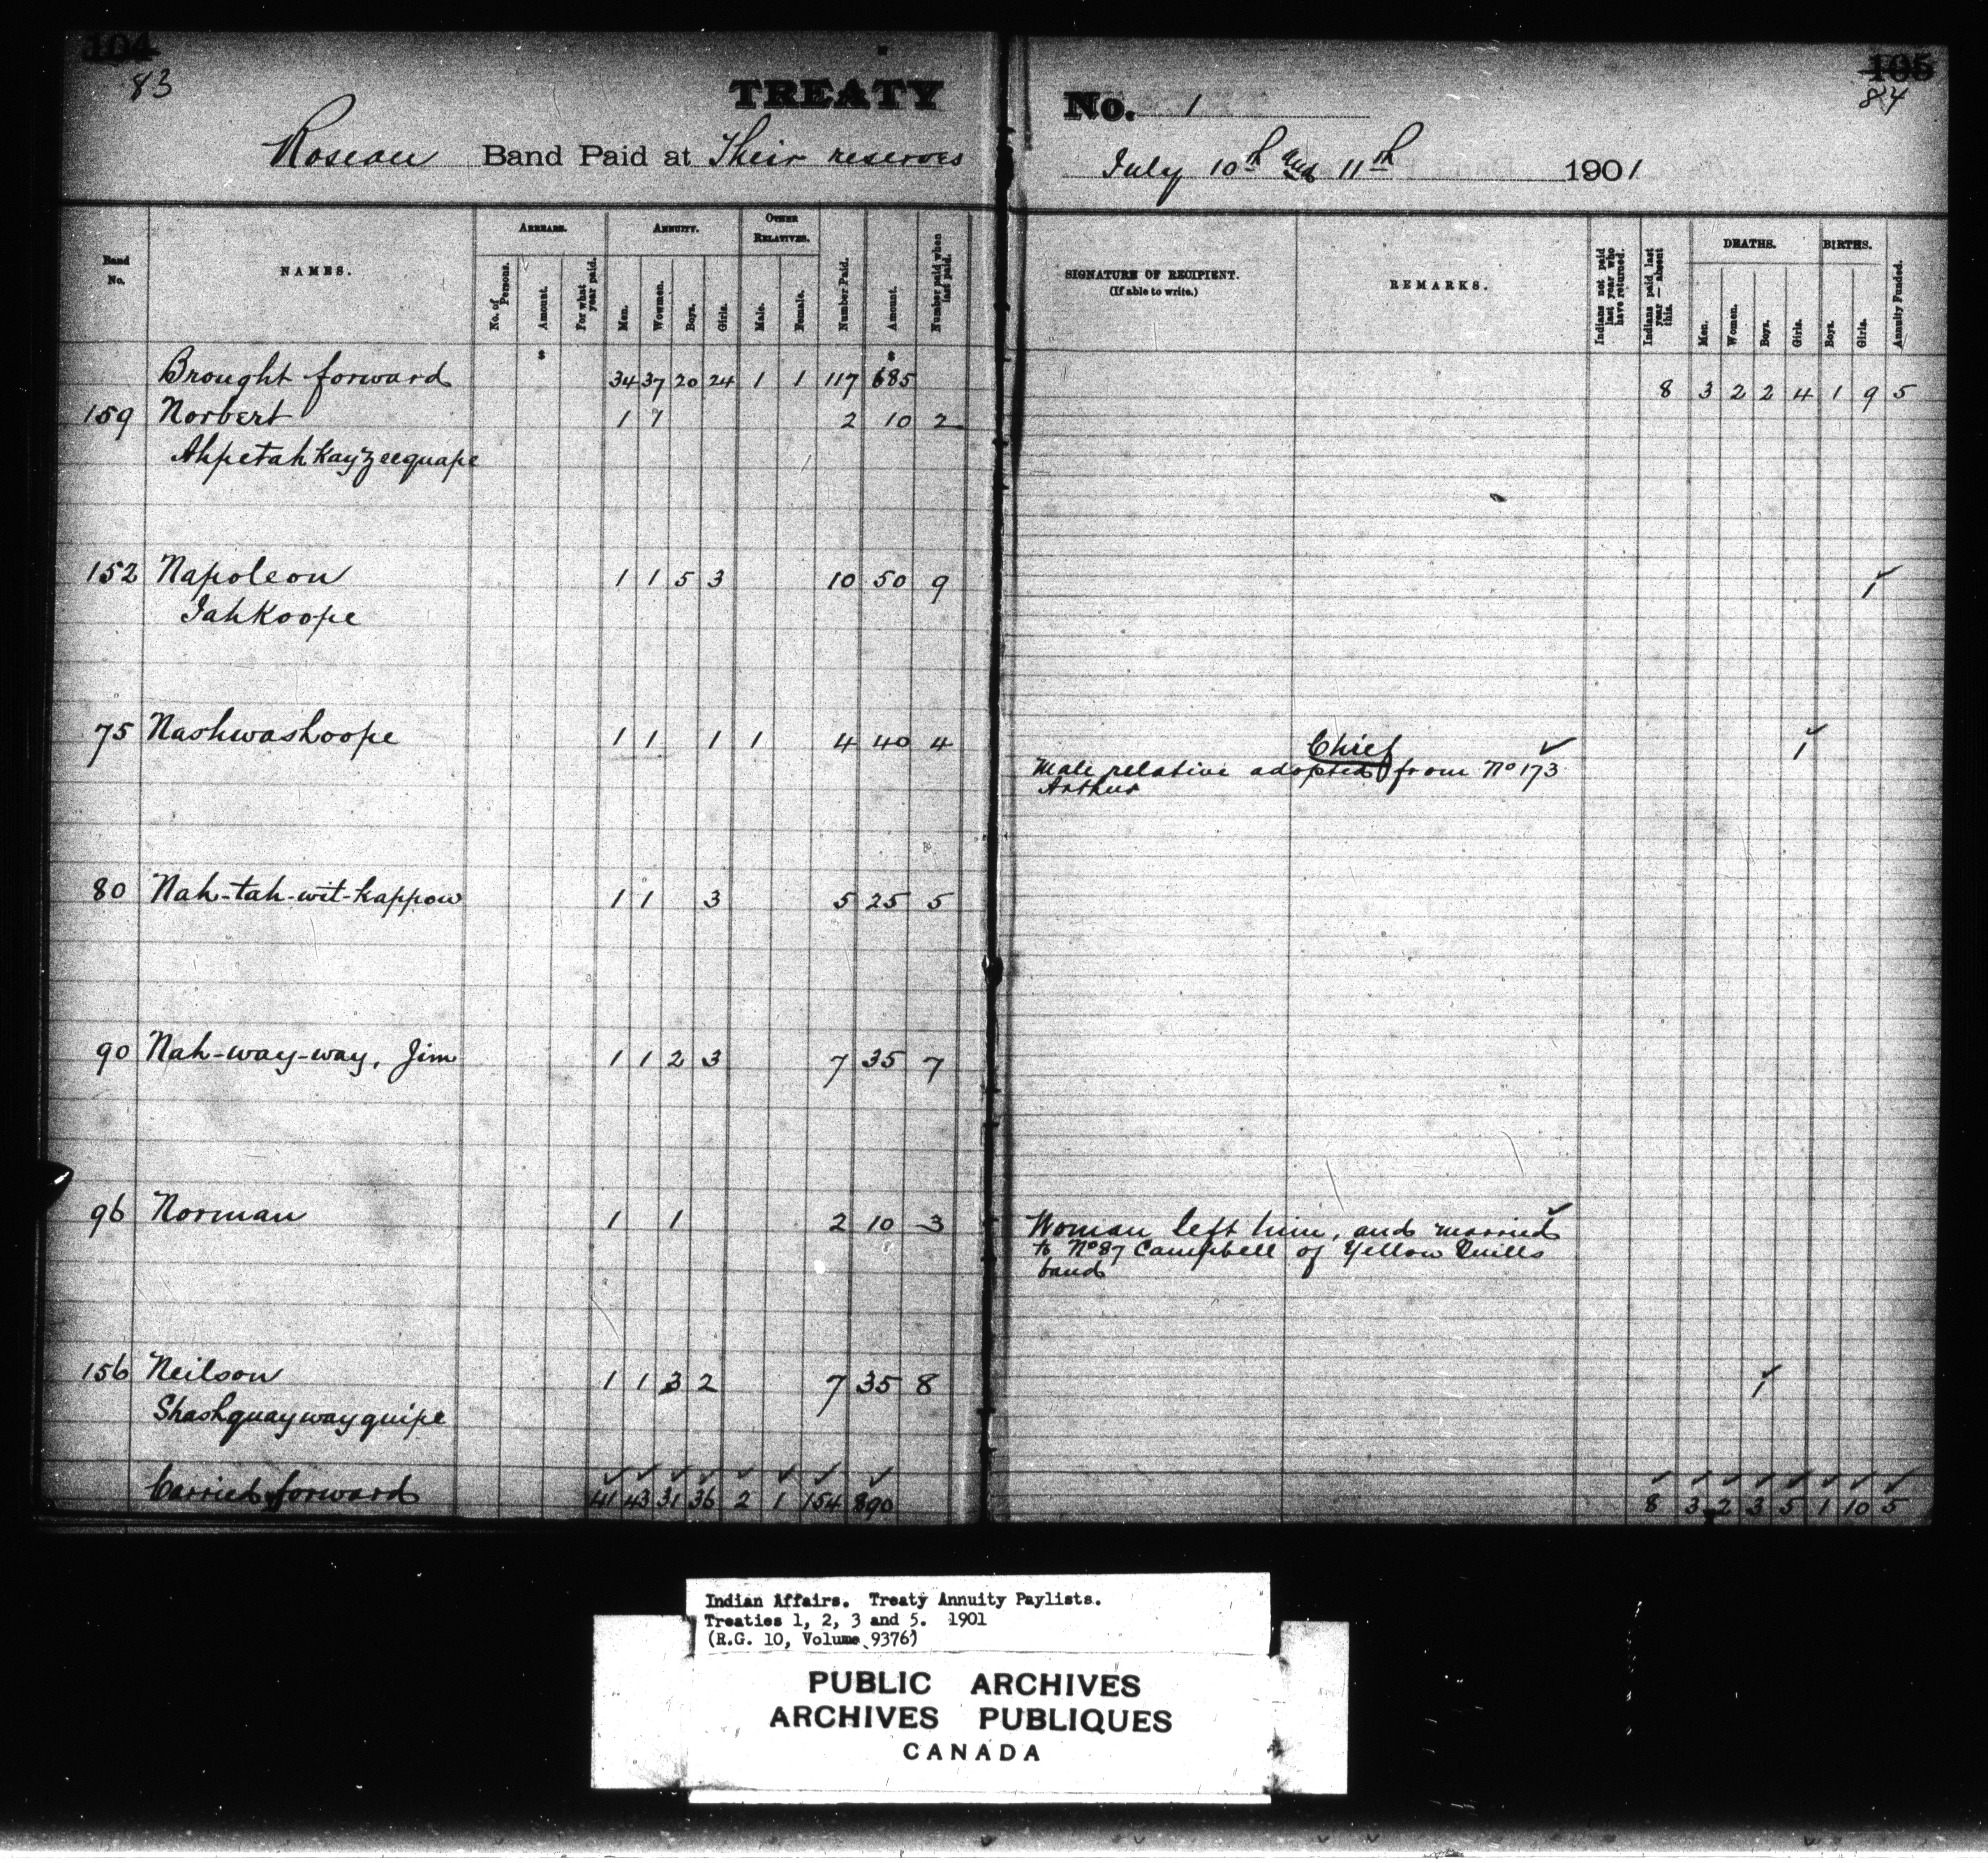 104
83
TREATY No. 1
105
84
Roseau Band Paid at Their reserves July 10th and 11th 1901
Band No.
NAMES.
ARREARS.
No. of Persons.
Amount.
For what year paid.
ANNUITY.
Men.
Wowmen.
Boys.
Girls.
OTHER RELATIVES.
Male.
Female.
Number Paid.
Amount.
Number paid when last paid.
SIGNATURE OF RECIPIENT.
(If able to write.)
REMARKS.
Indians not paid last year who have returned.
Indians paid last year — absent this.
DEATHS.
Men.
Women.
Boys.
Girls.
BIRTHS.
Boys.
Girls.
Annuity Funded.
$ $
Brought forward 34 37 20 24 1 1 117 685 8 3 2 2 4 1 9 5
159 Norbert 1 1 2 10 2
Ahpetahkayzeequape
152 Napoleon 1 1 5 3 10 50 9 1 ✓
Iahkoope
75 Nashwashoope 1 1 1 1 4 40 4 Chief ✓ 1 ✓
Male relative adopted from No 173
Arthur
80 Nah-tah-wit-kappow 1 1 3 5 25 5
90 Nah-way-way, Jim 1 1 2 3 7 35 7
96 Norman 1 1 2 10 3 Woman left him, and married ✓
to No 87 Campbell of Yellow Quills
band
156 Neilson 1 1 3 2 7 35 8 1 ✓
Shashquaywayquipe
✓ ✓ ✓ ✓ ✓ ✓ ✓ ✓ ✓ ✓ ✓ ✓ ✓ ✓ ✓ ✓
Carried forward 41 43 31 36 2 1 154 890 8 3 2 3 5 1 10 5
Indian Affairs. Treaty Annuity Paylists.
Treaties 1, 2, 3 and 5. 1901
(R.G. 10, Volume 9376)
PUBLIC ARCHIVES
ARCHIVES PUBLIQUES
CANADA